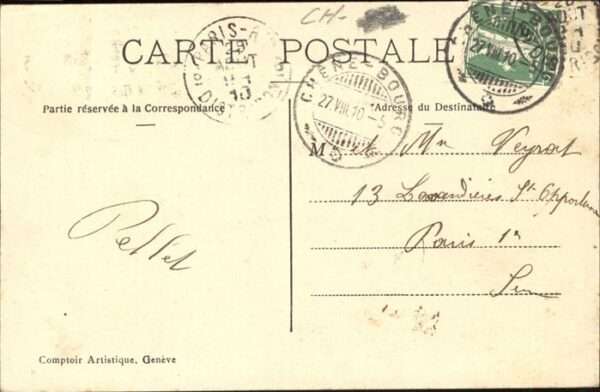 CH-
CARTE POSTALE
PARIS
28
10
CHÊNE-BOURG
27.VIII.10-5
CHÊNE-BOURG
27.VIII.10
Partie réservée à la Correspondance
Adresse du Destinataire
M et Mme Veyrat
13 Lavandières St Opportune
Paris 1r
Pellet
Comptoir Artistique, Genève